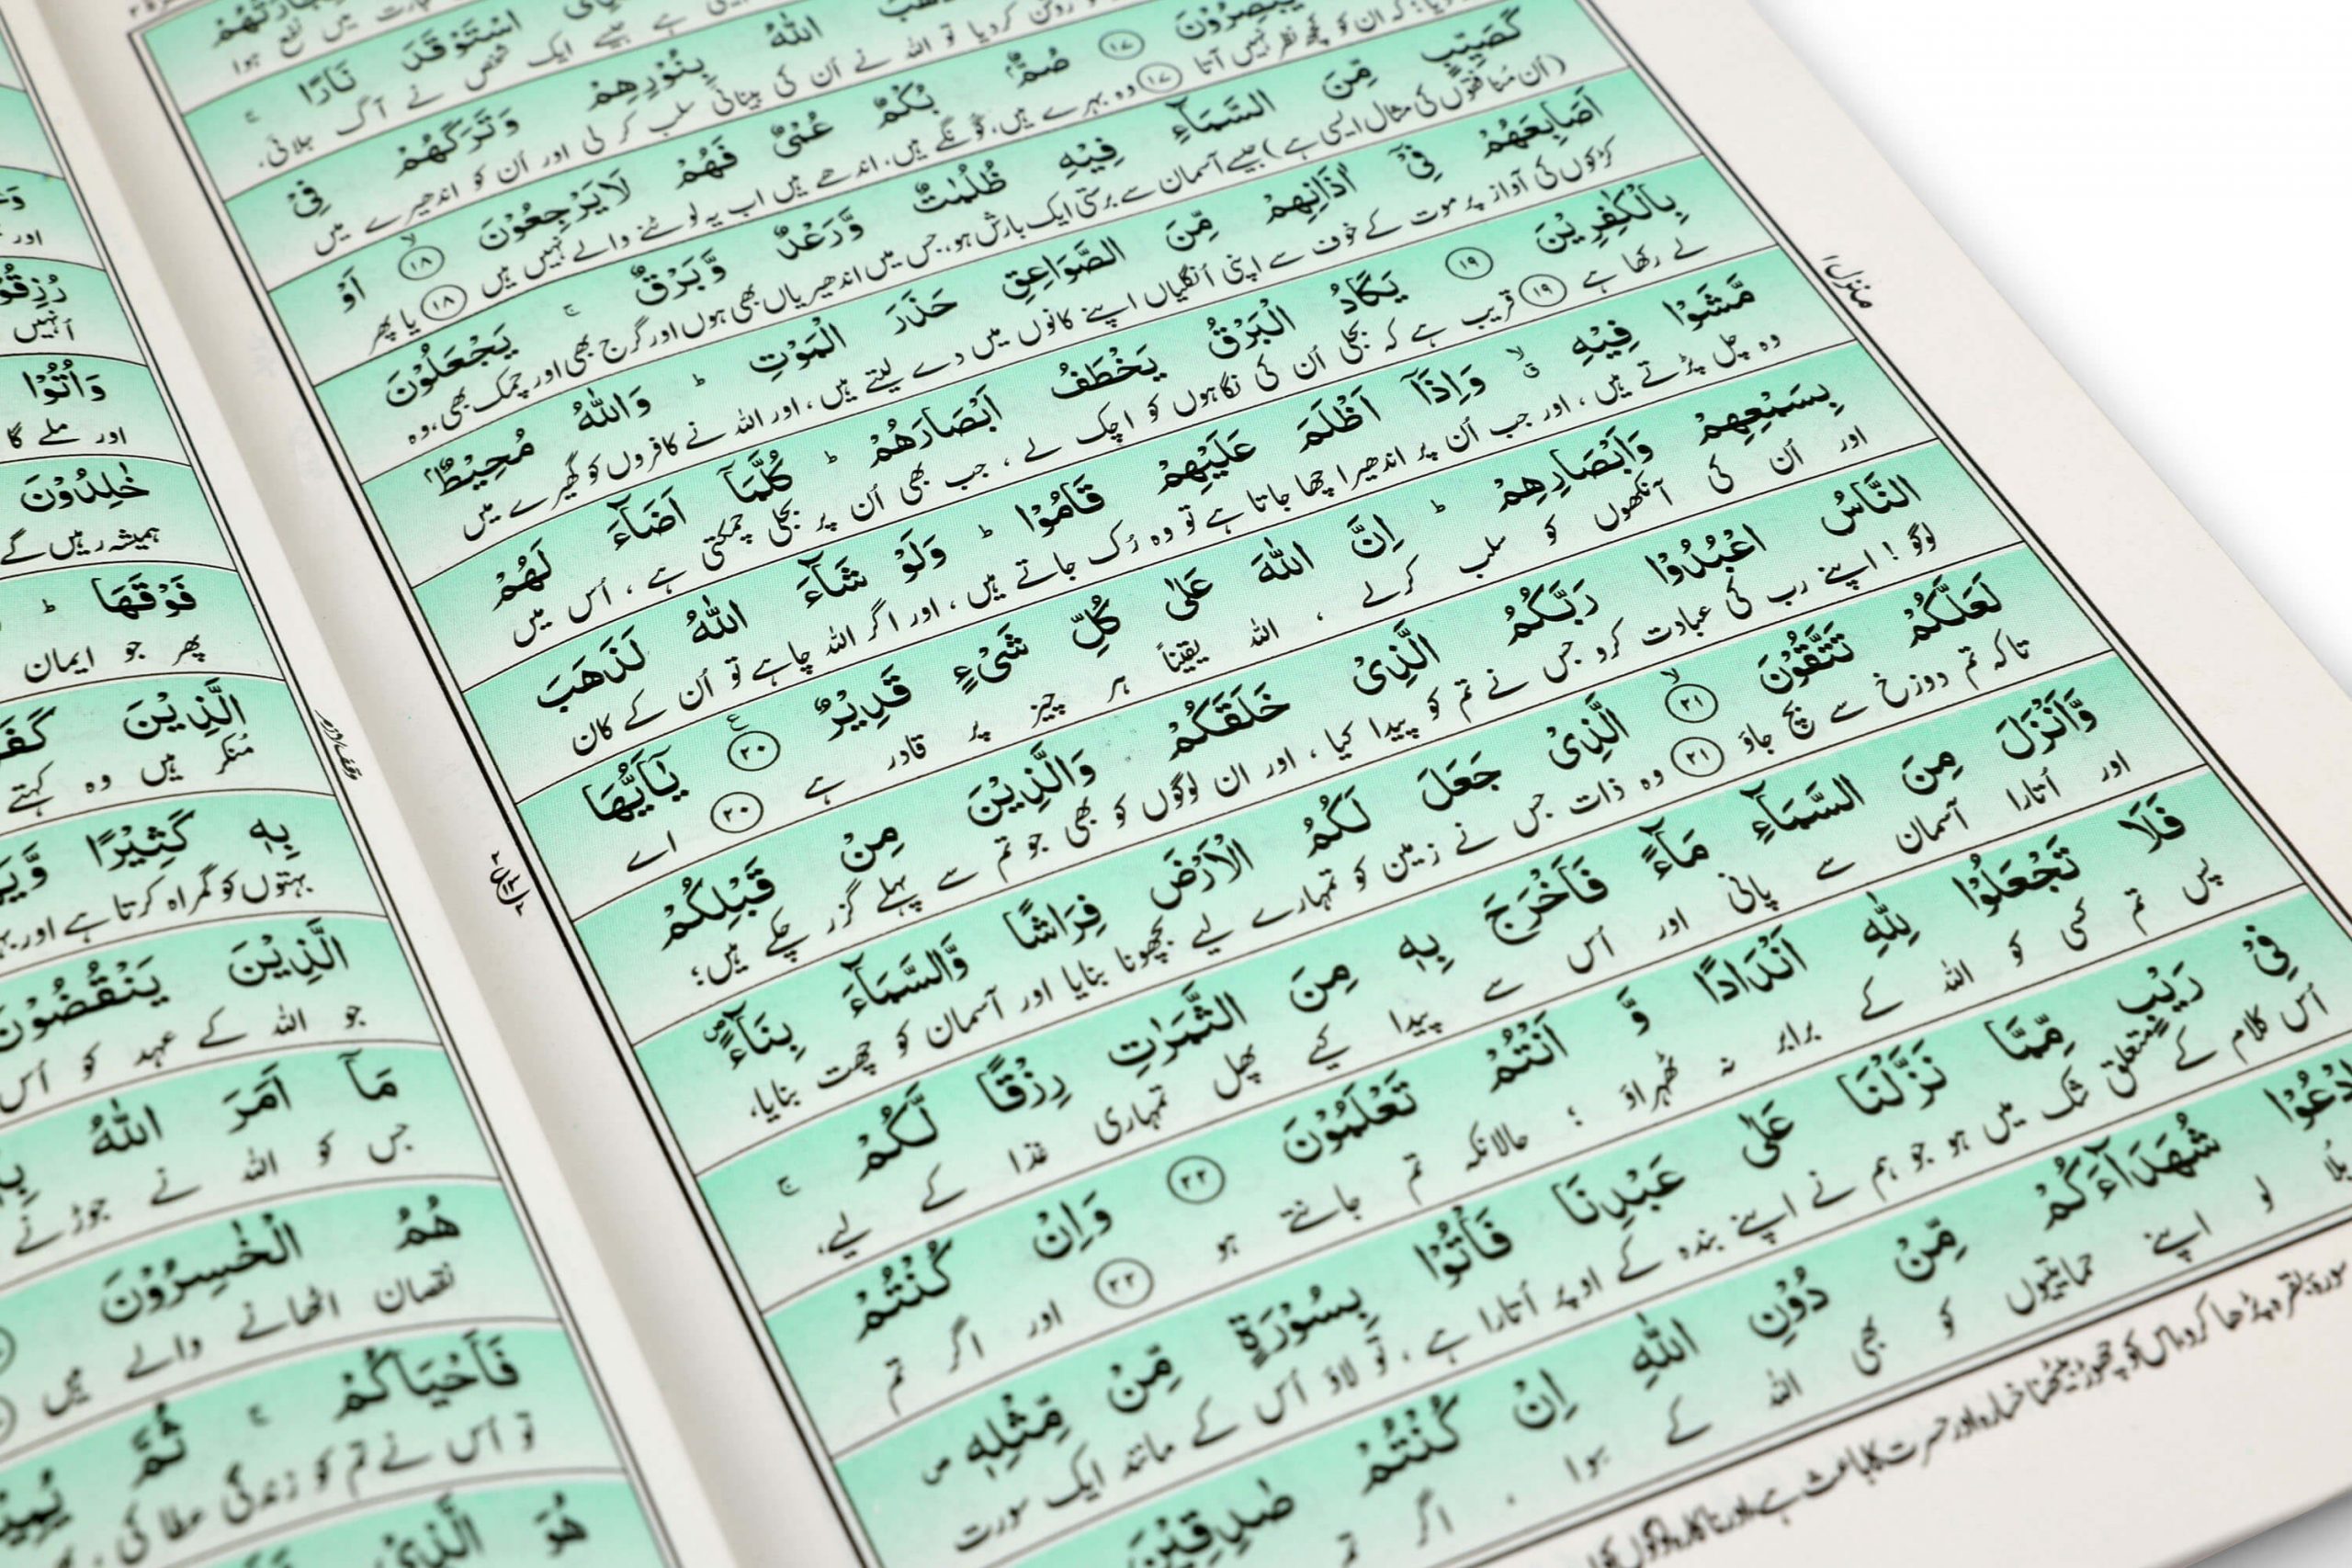 اسْتَوْقَدَ نَارًا ۚ
ایک شخص نے آگ جلائی،
اللّٰهُ بِنُوْرِهِمْ وَتَرَكَهُمْ فِیْ
روشن کردیا تو اللہ نے اُن کی بینائی سلب کر لی اور اُن کو اندھیرے میں
يُبْصِرُوْنَ ﴿۱۷﴾ صُمٌّۢ بُكْمٌ عُمْیٌ فَهُمْ لَا يَرْجِعُوْنَ ﴿۱۸﴾ اَوْ
کہ ان کو کچھ نظر نہیں آتا ﴿۱۷﴾ وہ بہرے ہیں، گونگے ہیں، اندھے ہیں اب یہ لوٹنے والے نہیں ہیں ﴿۱۸﴾ یا پھر
كَصَيِّبٍ مِّنَ السَّمَآءِ فِيْهِ ظُلُمٰتٌ وَّرَعْدٌ وَّبَرْقٌ ۚ يَجْعَلُوْنَ
(اُن منافقوں کی مثال ایسی ہے) جیسے آسمان سے برستی ایک بارش ہو، جس میں اندھیریاں بھی ہوں اور گرج بھی اور چمک بھی، وہ
اَصَابِعَهُمْ فِیْۤ اٰذَانِهِمْ مِّنَ الصَّوَاعِقِ حَذَرَ الْمَوْتِ ؕ وَاللّٰهُ مُحِيْطٌۢ
کڑکوں کی آواز پر موت کے خوف سے اپنی انگلیاں اپنے کانوں میں دے لیتے ہیں، اور اللہ نے کافروں کو گھیرے میں
بِالْكٰفِرِيْنَ ﴿۱۹﴾ يَكَادُ الْبَرْقُ يَخْطَفُ اَبْصَارَهُمْ ؕ كُلَّمَاۤ اَضَآءَ لَهُمْ
لے رکھا ہے ﴿۱۹﴾ قریب ہے کہ بجلی اُن کی نگاہوں کو اچک لے، جب بھی اُن پر بجلی چمکتی ہے، اُس میں
مَّشَوْا فِيْهِ ۙ وَاِذَاۤ اَظْلَمَ عَلَيْهِمْ قَامُوْا ؕ وَلَوْ شَآءَ اللّٰهُ لَذَهَبَ
وہ چل پڑتے ہیں، اور جب اُن پر اندھیرا چھا جاتا ہے تو وہ رُک جاتے ہیں، اور اگر اللہ چاہے تو اُن کے کان
بِسَمْعِهِمْ وَاَبْصَارِهِمْ ؕ اِنَّ اللّٰهَ عَلٰى كُلِّ شَیْءٍ قَدِيْرٌ ﴿۲۰﴾ يٰۤاَيُّهَا
اور اُن کی آنکھوں کو سلب کرلے، اللہ یقیناً ہر چیز پر قادر ہے ﴿۲۰﴾ اے
النَّاسُ اعْبُدُوْا رَبَّكُمُ الَّذِیْ خَلَقَكُمْ وَالَّذِيْنَ مِنْ قَبْلِكُمْ
لوگو! اپنے رب کی عبادت کرو جس نے تم کو پیدا کیا، اور ان لوگوں کو بھی جو تم سے پہلے گزر چکے ہیں؛
لَعَلَّكُمْ تَتَّقُوْنَ ﴿۲۱﴾ الَّذِیْ جَعَلَ لَكُمُ الْاَرْضَ فِرَاشًا وَّالسَّمَآءَ بِنَآءً
تاکہ تم دوزخ سے بچ جاؤ ﴿۲۱﴾ وہ ذات جس نے زمین کو تمہارے لیے بچھونا بنایا اور آسمان کو چھت بنایا،
وَّاَنْزَلَ مِنَ السَّمَآءِ مَآءً فَاَخْرَجَ بِهٖ مِنَ الثَّمَرٰتِ رِزْقًا لَّكُمْ ۚ
اور اُتارا آسمان سے پانی اور اُس سے پیدا کیے پھل تمہاری غذا کے لیے،
فَلَا تَجْعَلُوْا لِلّٰهِ اَنْدَادًا وَّ اَنْتُمْ تَعْلَمُوْنَ ﴿۲۲﴾ وَاِنْ كُنْتُمْ
پس تم کسی کو اللہ کے برابر نہ ٹھہراؤ؛ حالانکہ تم جانتے ہو ﴿۲۲﴾ اور اگر تم
فِیْ رَيْبٍ مِّمَّا نَزَّلْنَا عَلٰى عَبْدِنَا فَاْتُوْا بِسُوْرَةٍ مِّنْ مِّثْلِهٖ ص
اُس کلام کے متعلق شک میں ہو جو ہم نے اپنے بندہ کے اوپر اُتارا ہے، تو لاؤ اُس کے مانند ایک سورت
وَادْعُوْا شُهَدَآءَكُمْ مِّنْ دُوْنِ اللّٰهِ اِنْ كُنْتُمْ صٰدِقِيْنَ
بُلا لو اپنے حمایتیوں کو بھی اللہ کے سوا، اگر تم
منزل۱
رُزِقُوْ
اُنہیں
وَاُتُوْا
اور ملے گا
خٰلِدُوْنَ
ہمیشہ رہیں گے
فَوْقَهَا ؕ
پھر جو ایمان
الَّذِيْنَ كَفَ
منکر ہیں وہ کہتے
بِهٖ كَثِيْرًا وَّيَ
بہتوں کو گمراہ کرتا ہے اور
الَّذِيْنَ يَنْقُضُوْنَ
جو اللہ کے عہد کو اُس
مَاۤ اَمَرَ اللّٰهُ
جس کو اللہ نے جوڑنے
هُمُ الْخٰسِرُوْنَ
نقصان اٹھانے والے ہیں
فَاَحْيَاكُمْ ۚ ثُمَّ
تو اُس نے تم کو زندگی عطا کی
هُوَ الَّذِیْ